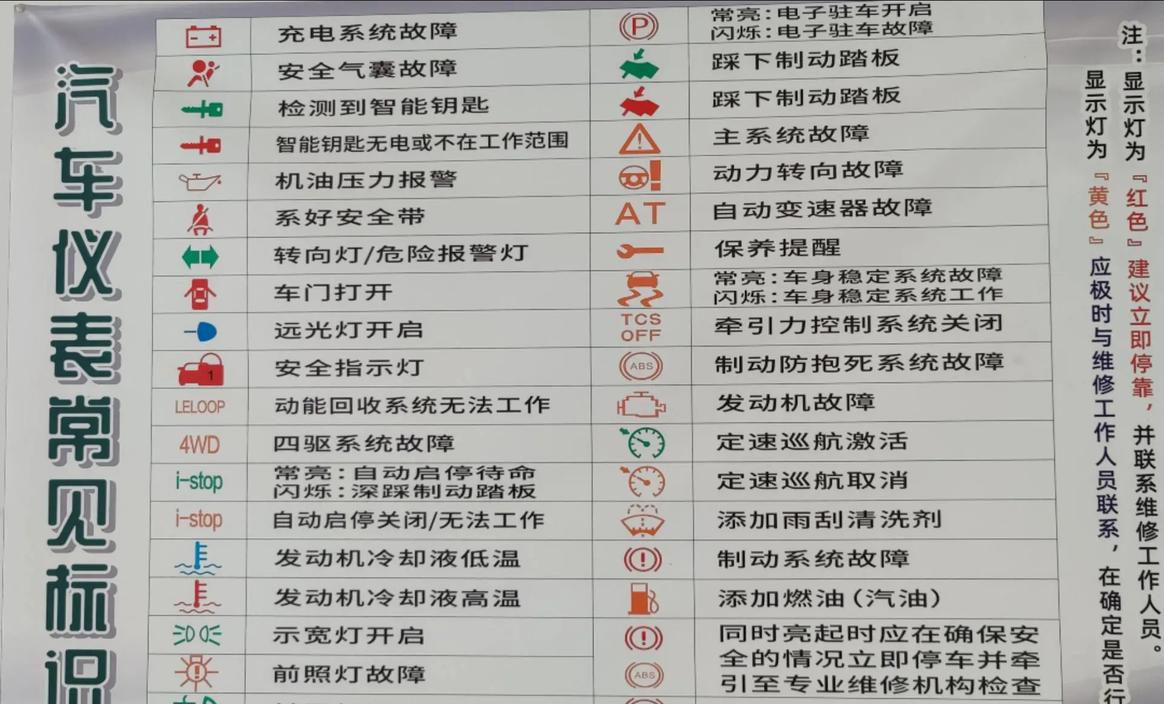 汽车仪表常见标识
充电系统故障
安全气囊故障
检测到智能钥匙
智能钥匙无电或不在工作范围
机油压力报警
系好安全带
转向灯/危险报警灯
车门打开
远光灯开启
1
安全指示灯
LELOOP
动能回收系统无法工作
4WD
四驱系统故障
i-stop
常亮:自动启停待命
闪烁:深踩制动踏板
i-stop
自动启停关闭/无法工作
发动机冷却液低温
发动机冷却液高温
示宽灯开启
前照灯故障
P
常亮:电子驻车开启
闪烁:电子驻车故障
踩下制动踏板
踩下制动踏板
主系统故障
动力转向故障
AT
自动变速器故障
保养提醒
常亮:车身稳定系统故障
闪烁:车身稳定系统工作
TCS
OFF
牵引力控制系统关闭
ABS
制动防抱死系统故障
发动机故障
定速巡航激活
定速巡航取消
添加雨刮清洗剂
制动系统故障
添加燃油(汽油)
ABS
同时亮起时应在确保安
全的情况立即停车并牵
引至专业维修机构检查
注:显示灯为『红色』建议立即停靠,并联系维修工作人员。
显示灯为『黄色』应极时与维修工作人员联系,在确定是否行